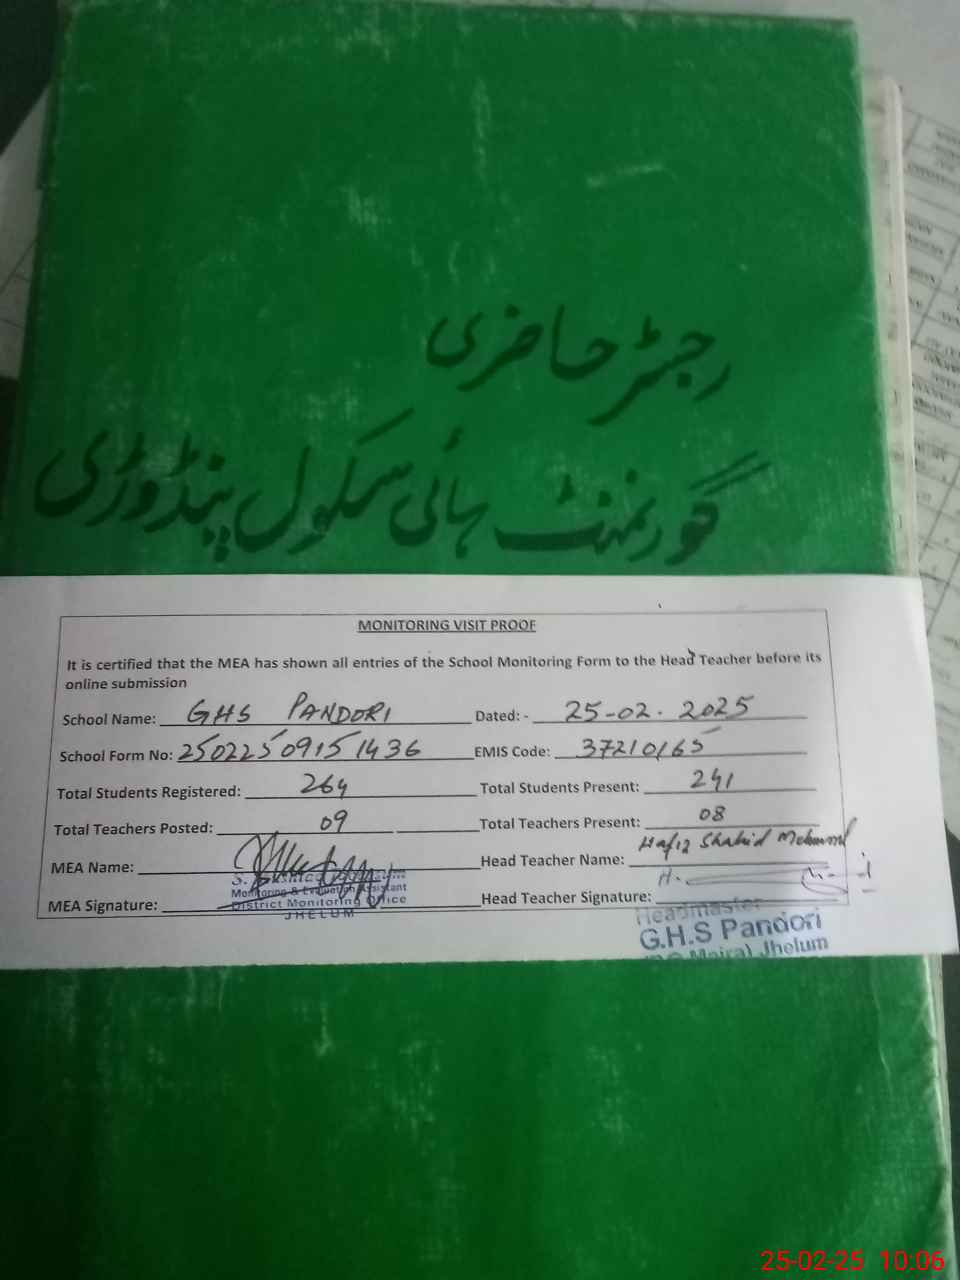 رجسٹر حاضری
گورنمنٹ ہائی سکول پنڈوڑی
MONITORING VISIT PROOF
It is certified that the MEA has shown all entries of the School Monitoring Form to the Head Teacher before its
online submission
School Name: GHS PANDORI Dated: - 25-02-2025
School Form No: 25022509151436 EMIS Code: 37210165
Total Students Registered: 264 Total Students Present: 241
Total Teachers Posted: 09 Total Teachers Present: 08
MEA Name: Head Teacher Name: Hafiz Shahid Mehmood
Monitoring & Evaluation Assistant
MEA Signature: District Monitoring Office Head Teacher Signature:
JHELUM
Headmaster
G.H.S Pandori
Jhelum
25-02-25 10:06